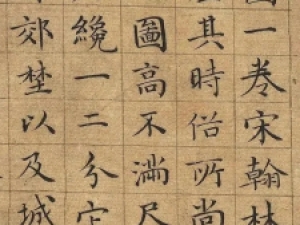 一卷宋翰林
其時俗所尚
圖高不滿尺
纔一二分它
郊埜以及城